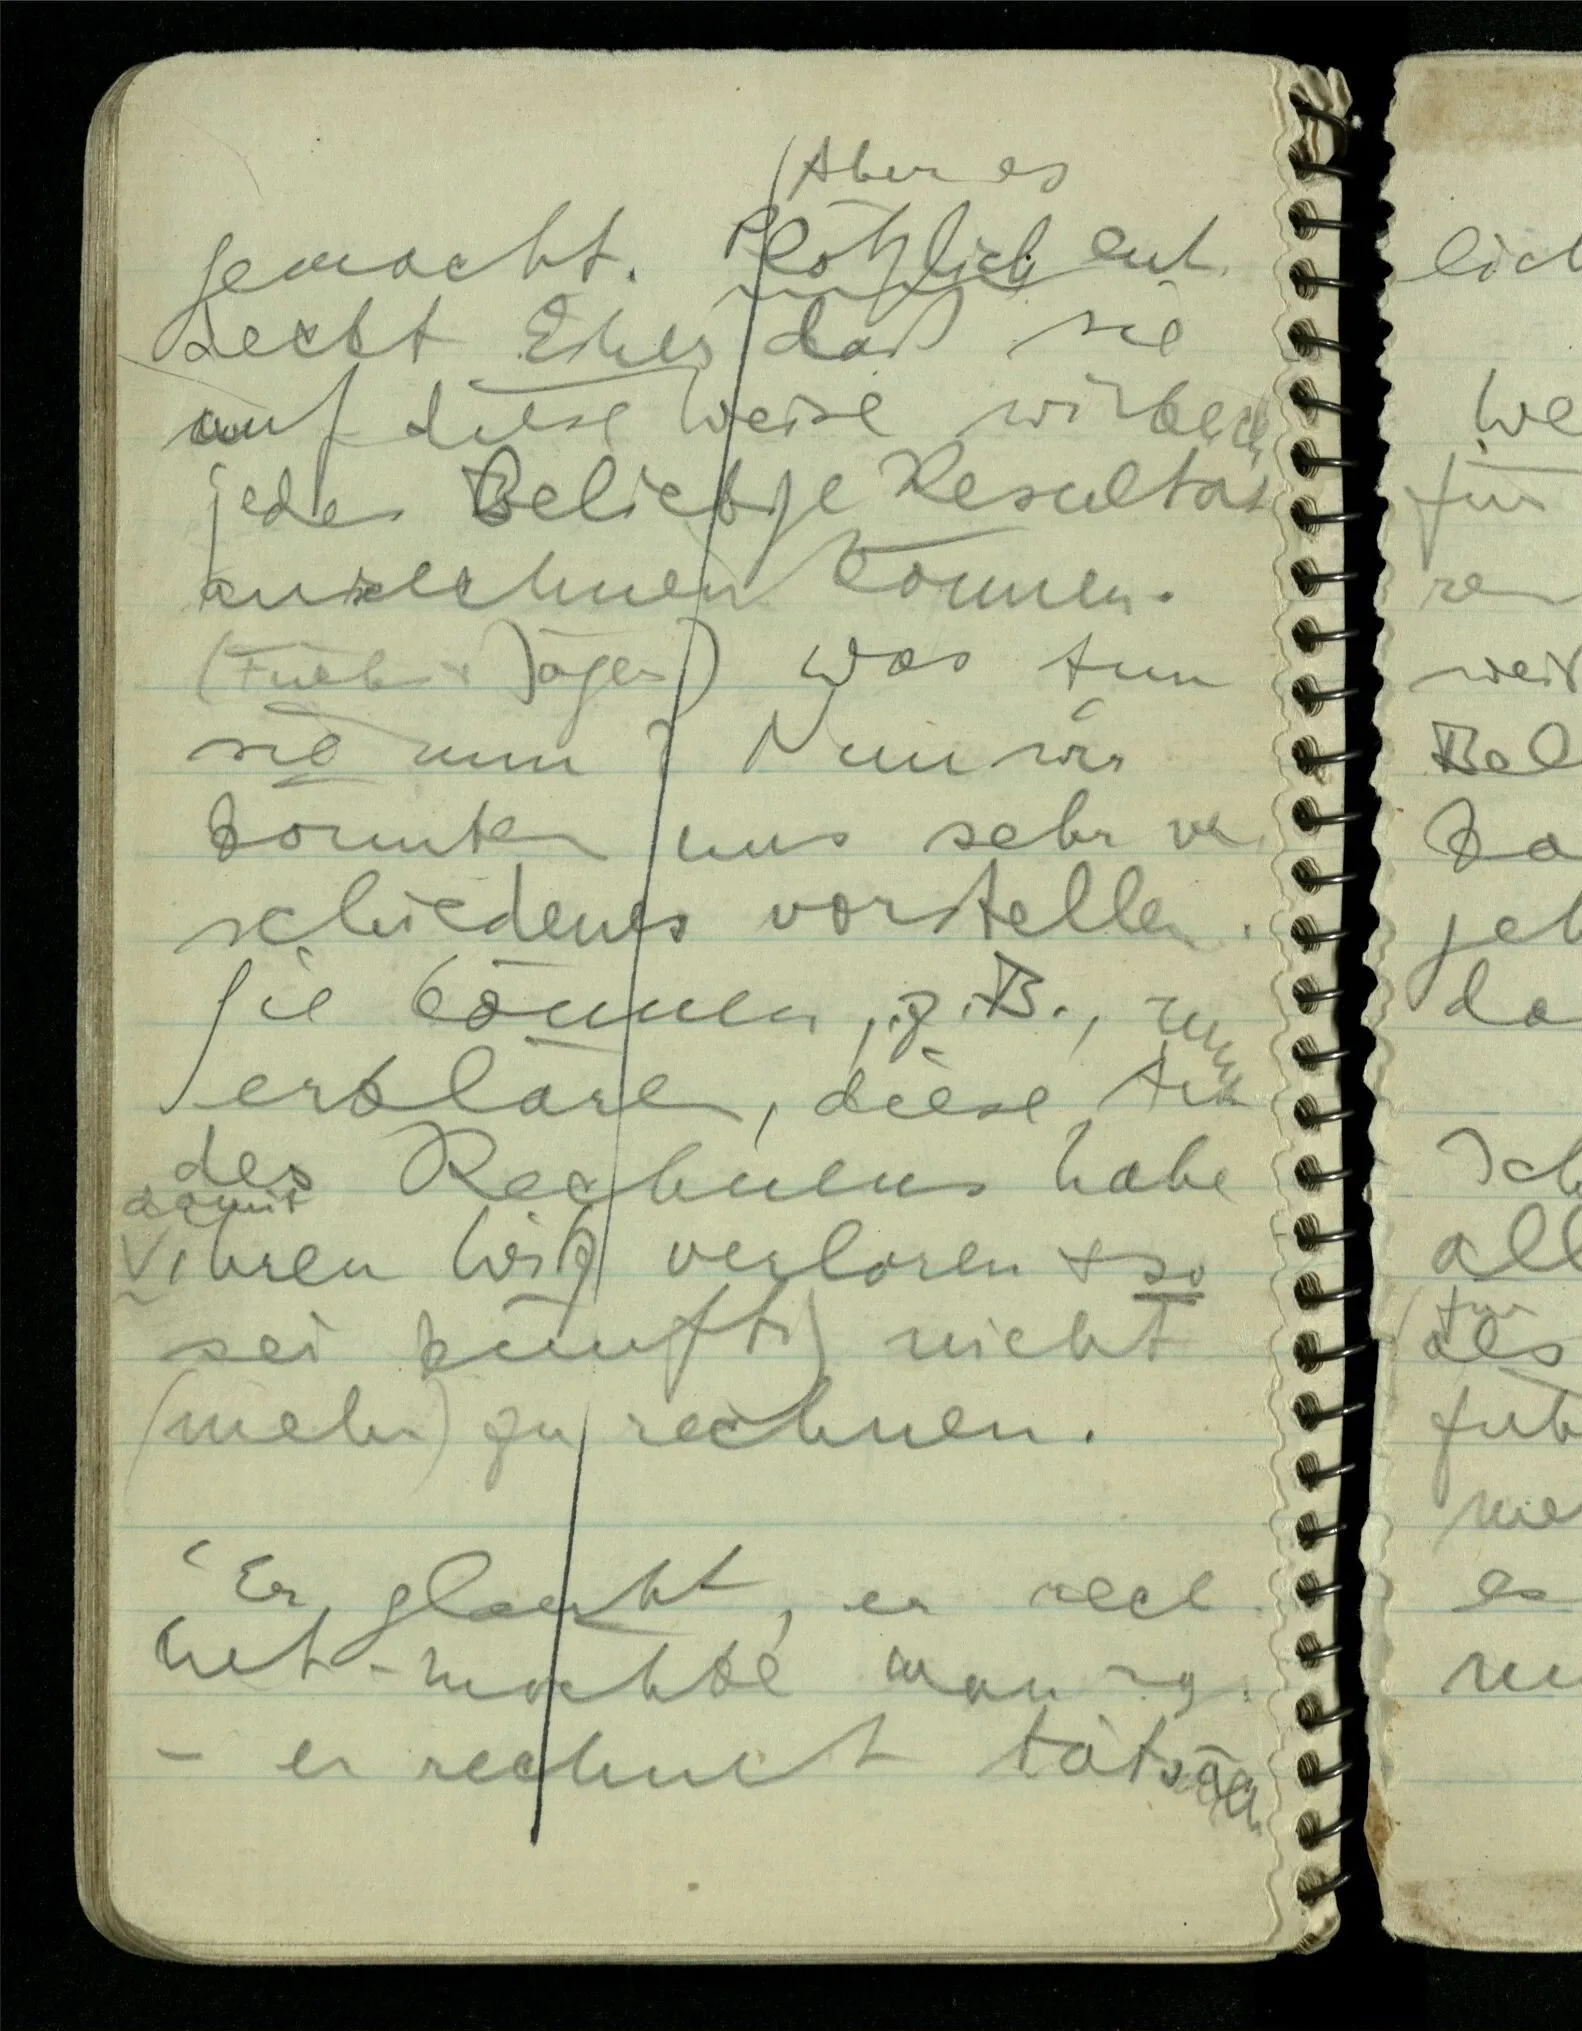 Aber es
gemacht. Plötzlich ent-
deckt Einer daß sie
auf diese Weise wirklich
jedes Beliebige Resultat
errechnen können.
( + Jäger) Was tun
sie nun? Nun wir
könnten uns sehr ver-
schiedenes vorstellen.
Sie können, z.B., nun
erklären, diese Art
des Rechnens habe
damit
ihren Witz verloren + so
sei künftig nicht
(mehr) zu rechnen.
'Er glaubt, er rech-
net – möchte man sagen
– er rechnet tatsäch-
lich
We
für
ren
weiß
Bel
Ka
geb
da
Ich
all
für
als
füh
me
es
nu